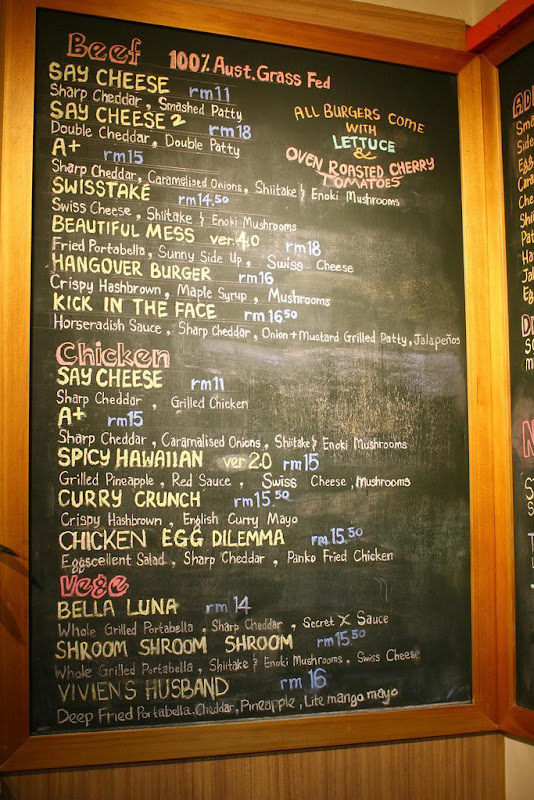 Beef 100% Aust. Grass Fed
SAY CHEESE rm11
Sharp Cheddar, Smashed Patty
SAY CHEESE 2 rm18
Double Cheddar, Double Patty
A+ rm15
Sharp Cheddar, Caramelised Onions, Shiitake & Enoki Mushrooms
SWISSTAKE rm14.50
Swiss Cheese, Shiitake & Enoki Mushrooms
BEAUTIFUL MESS ver 4.0 rm18
Fried Portabella, Sunny Side Up, Swiss Cheese
HANGOVER BURGER rm16
Crispy Hashbrown, Maple Syrup, Mushrooms
KICK IN THE FACE rm16.50
Horseradish Sauce, Sharp Cheddar, Onion + Mustard Grilled Patty, Jalapeños
ALL BURGERS COME
WITH
LETTUCE
&
OVEN ROASTED CHERRY
TOMATOES
Chicken
SAY CHEESE rm11
Sharp Cheddar, Grilled Chicken
A+ rm15
Sharp Cheddar, Caramalised Onions, Shiitake & Enoki Mushrooms
SPICY HAWAIIAN ver 2.0 rm15
Grilled Pineapple, Red Sauce, Swiss Cheese, Mushrooms
CURRY CRUNCH rm15.50
Crispy Hashbrown, English Curry Mayo
CHICKEN EGG DILEMMA rm15.50
Eggscellent Salad, Sharp Cheddar, Panko Fried Chicken
Vege
BELLA LUNA rm14
Whole Grilled Portabella, Sharp Cheddar, Secret X Sauce
SHROOM SHROOM SHROOM rm15.50
Whole Grilled Portabella, Shiitake & Enoki Mushrooms, Swiss Cheese
VIVIEN'S HUSBAND rm16
Deep Fried Portabella, Cheddar, Pineapple, Lite mango mayo